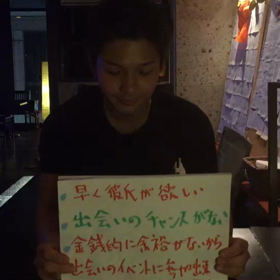 早く彼氏が欲しい
出会いのチャンスがない
金銭的に余裕がないから
出会いのイベントに参加出来